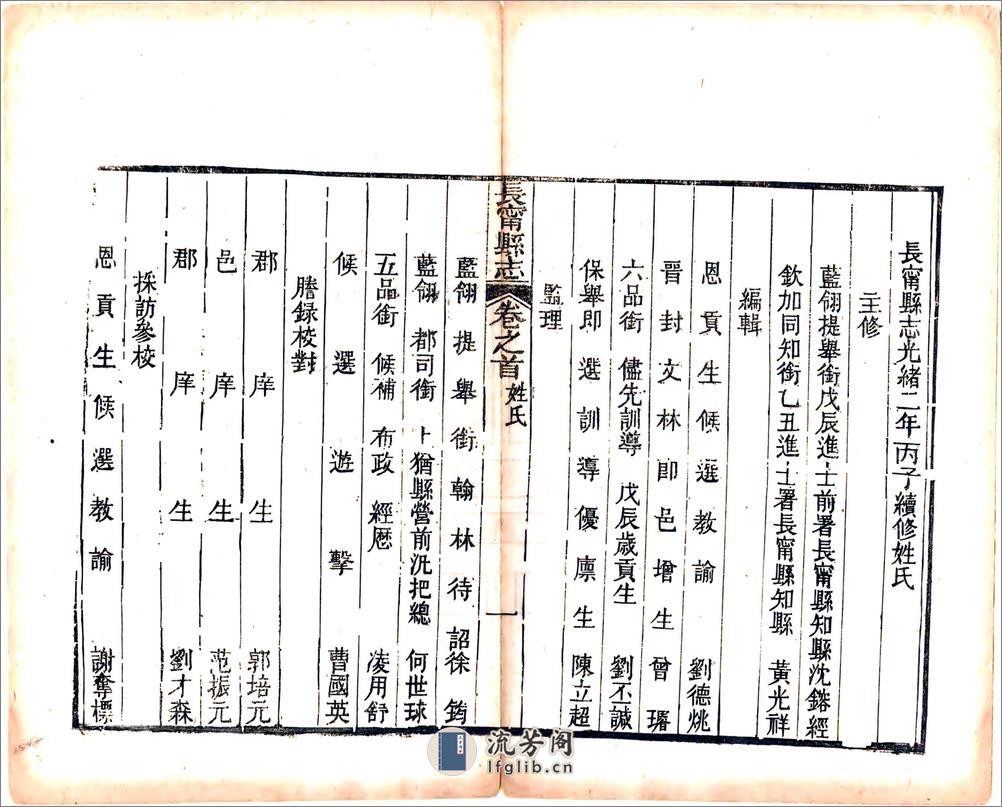 長甯縣志光緒二年丙子續修姓氏
主修
藍翎提舉銜戊辰進士前署長甯縣知縣沈鎔經
欽加同知銜乙丑進士署長甯縣知縣 黃光祥
編輯
恩貢生候選教諭 劉德姚
晉封文林郎邑增生 曾璿
六品銜 儘先訓導 戊辰歲貢生 劉丕誠
保舉即選訓導優廩生 陳立超
監理
長甯縣志 卷之首 姓氏 一
藍翎提舉銜翰林待詔 徐筠
藍翎 都司銜 上猶縣營前汛把總 何世球
五品銜 候補布政經歷 凌用舒
候選遊擊 曹國英
謄錄校對
郡庠生 郭培元
邑庠生 范振元
郡庠生 劉才森
採訪參校
恩貢生候選教諭 謝奪標
流芳阁
lfglib.cn